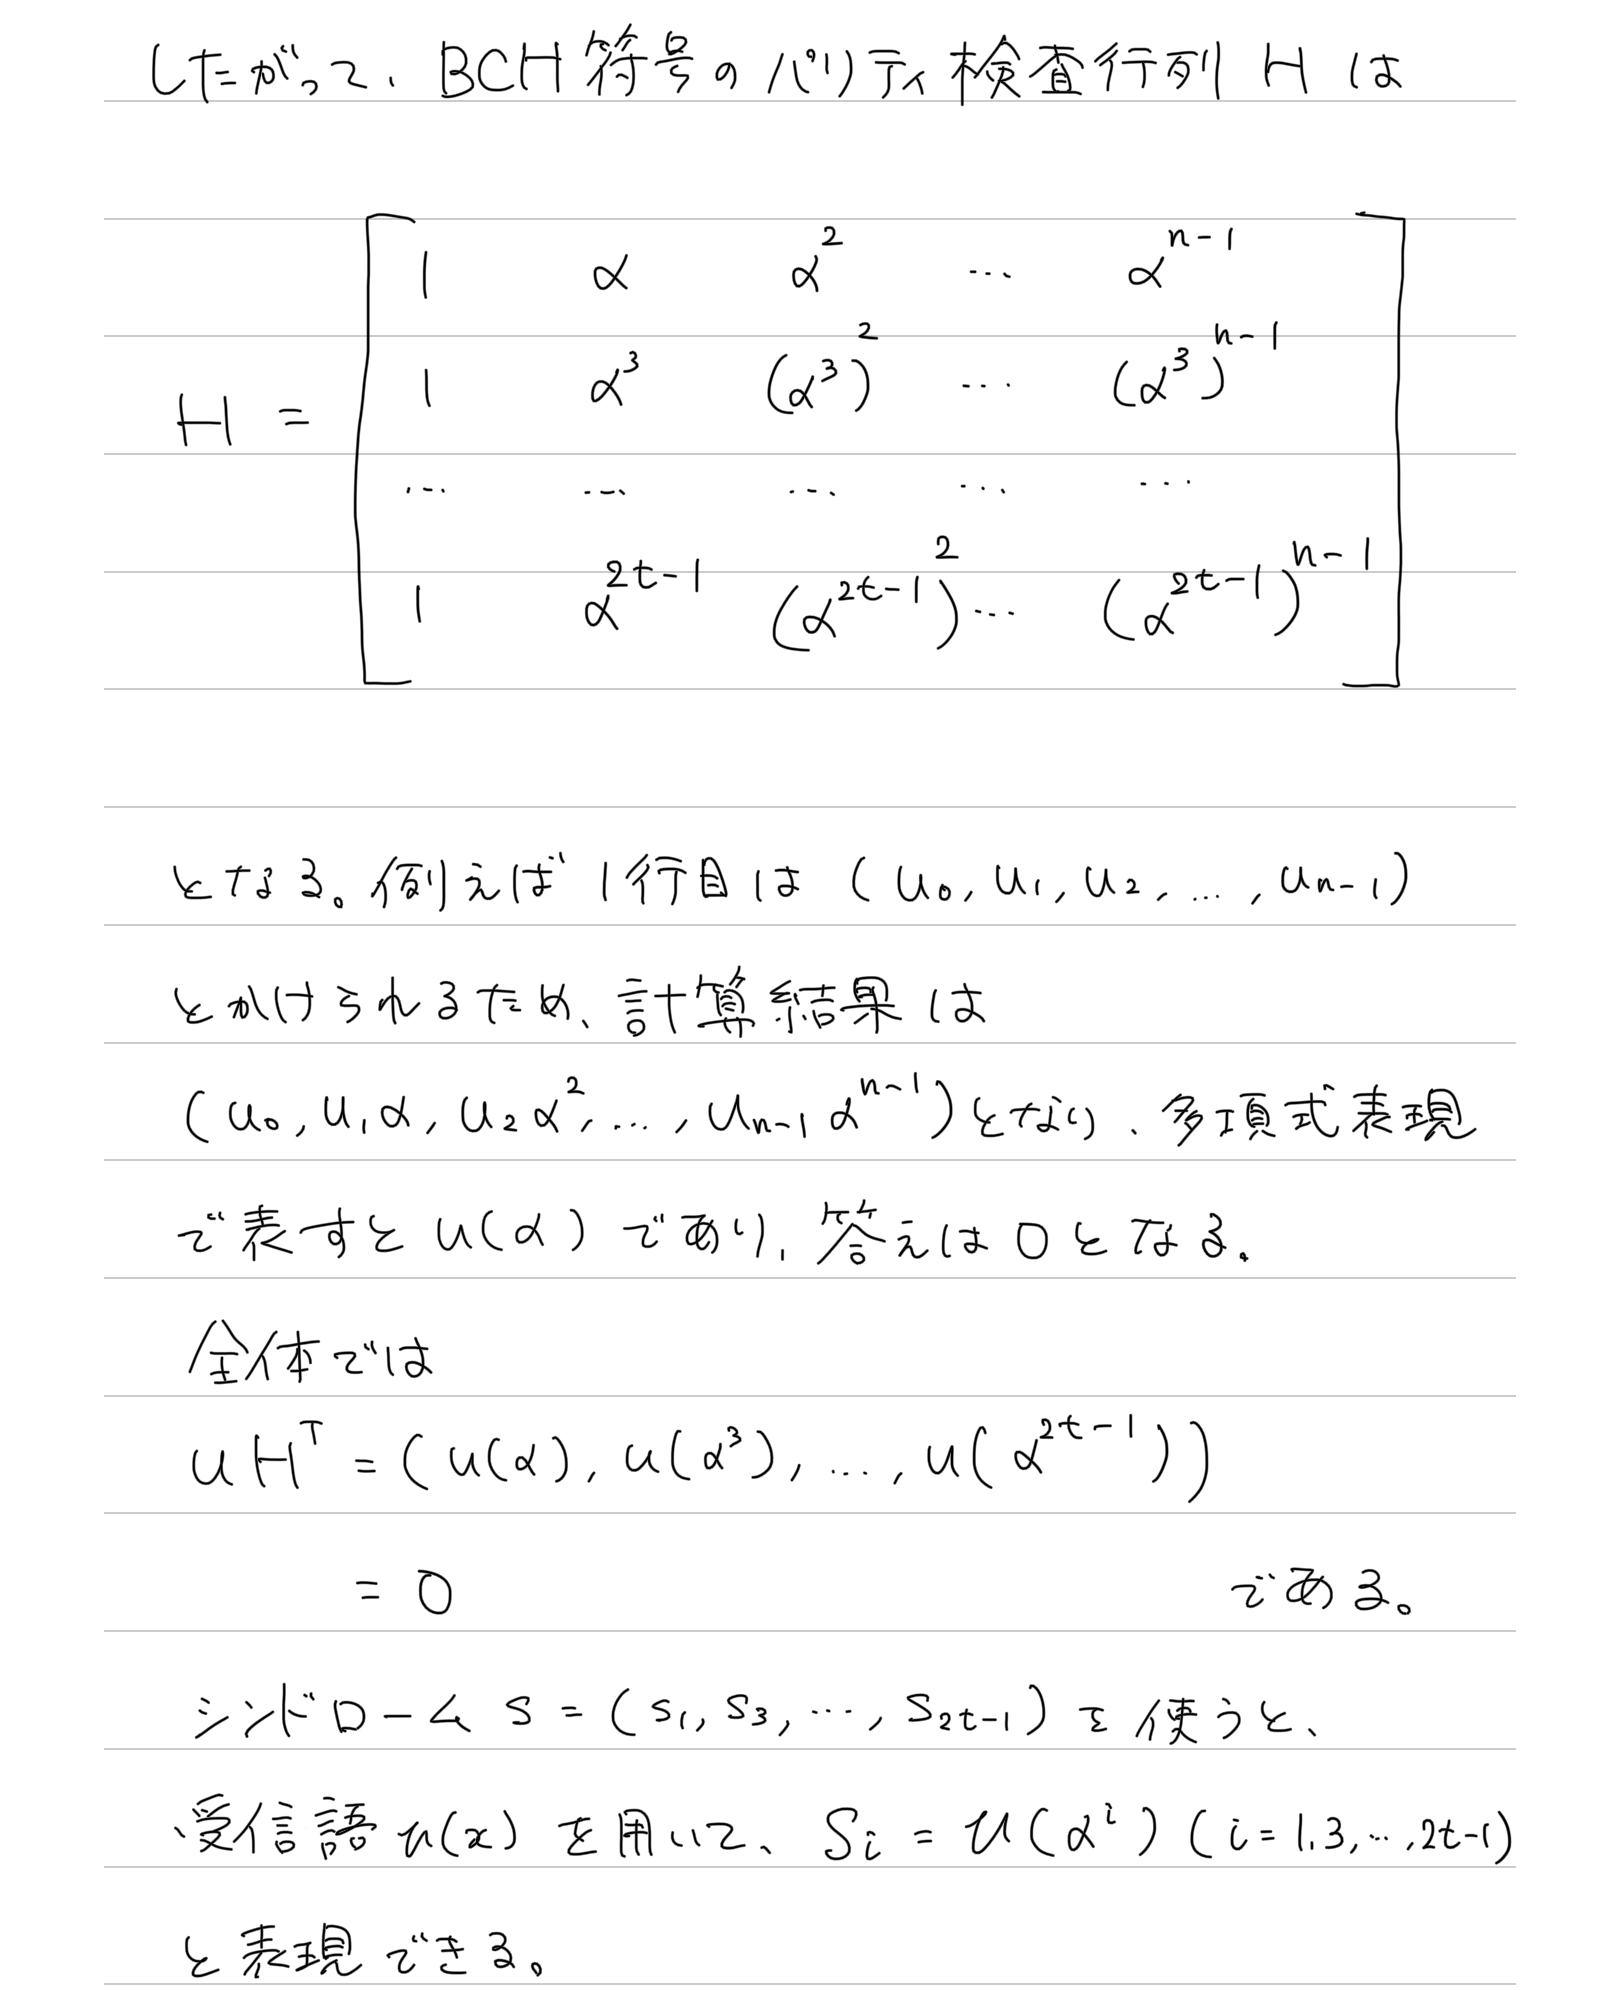 したがって、BCH符号のパリティ検査行列 H は
H = [
1 α α^2 … α^{n-1}
1 α^3 (α^3)^2 … (α^3)^{n-1}
… … … … …
1 α^{2t-1} (α^{2t-1})^2 … (α^{2t-1})^{n-1}
]
となる。例えば1行目は (u_0, u_1, u_2, …, u_{n-1})
とかけられるため、計算結果は
(u_0, u_1α, u_2α^2, …, u_{n-1}α^{n-1})となり、多項式表現
で表すと u(α) であり、答えは 0 となる。
全体では
uH^T = (u(α), u(α^3), …, u(α^{2t-1}))
= 0 である。
シンドローム s = (s_1, s_3, …, s_{2t-1}) を使うと、
受信語 u(x) を用いて、 S_i = u(α^i) (i=1,3,…,2t-1)
と表現できる。